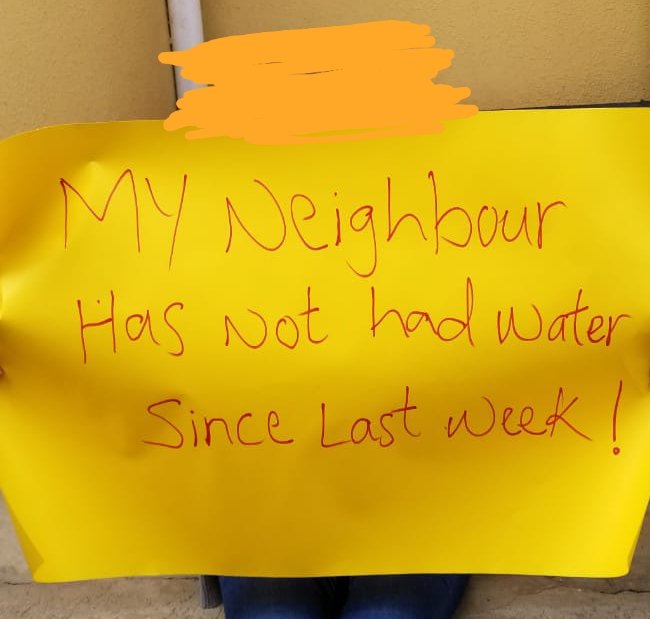 My Neighbour
Has Not had water
Since Last Week!